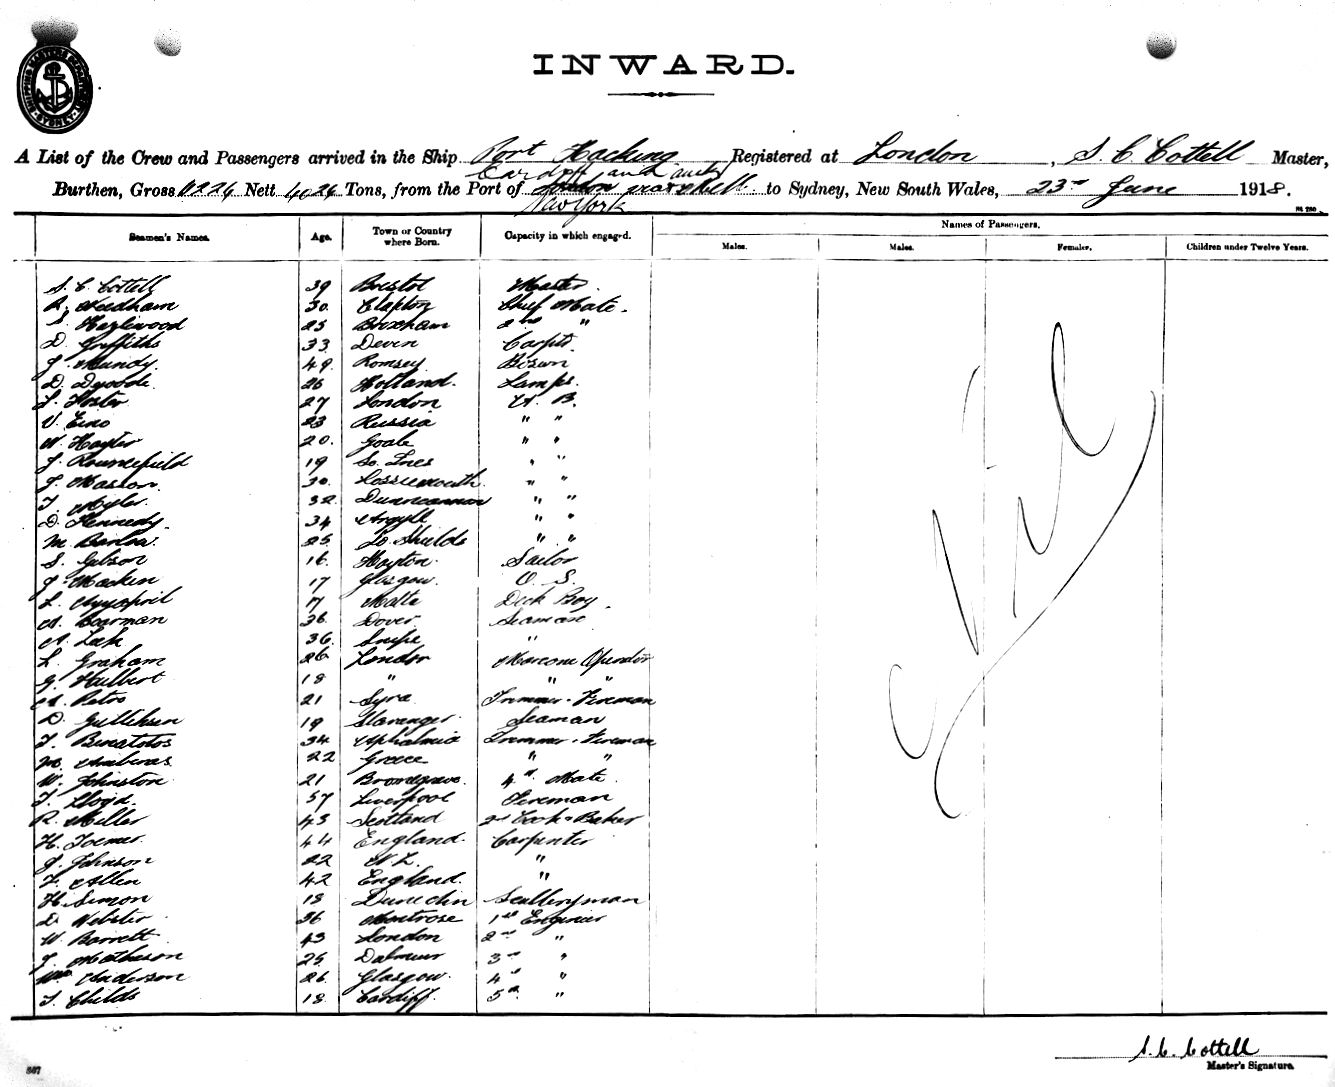 SHIPPING MASTER'S DEPARTMENT SYDNEY
INWARD.
A List of the Crew and Passengers arrived in the Ship Port Hacking Registered at London, S. C. Cottell Master,
Cardiff and
Burthen, Gross Nett 4026 Tons, from the Port of to Sydney, New South Wales, 23rd June 1918.
New York
Names of Passengers.
Seamen's Names. Age. Town or Country where Born. Capacity in which engaged. Males. Males. Females. Children under Twelve Years.
S. C. Cottell 39 Bristol Master
R. Needham 30 Clapton Chief Mate.
S. Hazlewood 25 Brixham 2nd "
D. Griffiths 33 Devon Carptr.
J. Mundy. 49 Romsey Bosun
D. 26 Holland. Lamps.
L. Foster 27 London A. B.
V. Eino 23 Russia " "
W. Hayter 20. Goole " "
J. 19 " "
J. Masson. 30. Lossiemouth. " "
T. Myler. 32 Duncannon " "
D. Kennedy. 34 Argyll " "
M. 25 So. Shields " "
S. Gibson 16 Hoyton Sailor
J. Mackin 17 Glasgow. O. S.
L. 17 Malta Deck Boy.
A. Boorman 36 Dover Seaman
A. Leek 36 Snipe "
L. Graham 26 London Marconi Operator
G. Hulbert 18 " " "
A. Petro 21 Syra Trimmer-Fireman
D. Gulliksen 19 Stavanger. Seaman
T. 34 Trimmer-Fireman
M. 22 Greece " "
W. Johnston 21 Bromsgrove. 4th Mate
T. Lloyd. 57 Liverpool Fireman
R. Miller 43 Scotland 2nd Cook & Baker
H. 44 England. Carpenter
J. Johnson 22 N Z. "
F. Allen 42 England. "
H. Simon 18 Dunedin Sculleryman
D. Webster 36 Montrose 1st Engineer
W. Barrett 43 London 2nd "
J. Matheson 25 Dalmuir 3rd "
Wm Anderson 26 Glasgow. 4th "
T. Childs 18 Cardiff. 5th "
Nil
S. C. Cottell
Master's Signature.